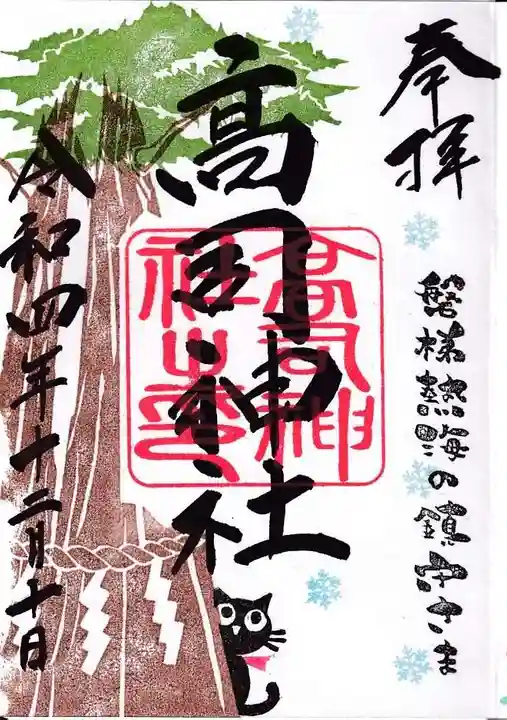 奉拝
磐梯熱海の鎮守さま
高司神社
高司神社之印
令和四年十二月十日